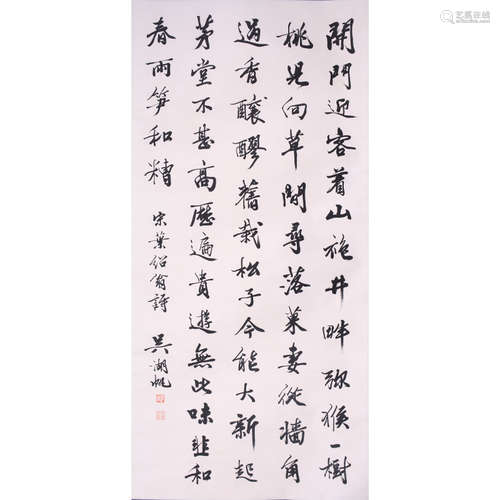 開門迎客着山袍井畔猕猴一樹
桃兒向草間尋落菓妻從牆角
過香釀醪舊栽松子今能大新起
茅堂不甚高歷遍貴遊無此味韭和
春雨笋和糟 宋葉紹翁詩 吳湖帆